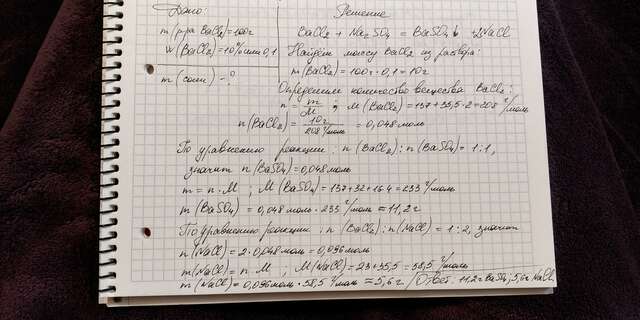 Дано:
m(р-ра BaCl2)=100г
W(BaCl2)=10% или 0,1
m(соли) -?
Решение
BaCl2 + Na2SO4 = BaSO4↓ + 2NaCl
Найдем массу BaCl2 из раствора:
m(BaCl2)=100г·0,1=10г
Определим количество вещества BaCl2:
n = m/M ; M(BaCl2)=137+35,5·2=208 г/моль
n(BaCl2)= 10г/208 г/моль = 0,048моль
По уравнению реакции: n(BaCl2):n(BaSO4)=1:1,
значит n(BaSO4)=0,048моль
m=n·M ; M(BaSO4)=137+32+16·4=233 г/моль
m(BaSO4)=0,048моль·233 г/моль=11,2г
По уравнению реакции: n(BaCl2):n(NaCl)=1:2, значит
n(NaCl)=2·0,048моль=0,096моль
m(NaCl)=n·M ; M(NaCl)=23+35,5=58,5 г/моль
m(NaCl)=0,096моль·58,5 г/моль≈5,6г /Ответ: 11,2г BaSO4; 5,6г NaCl